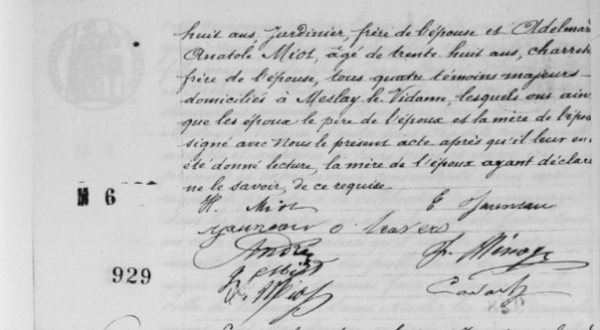 huit ans, Jardinier, frère de l'épouse et Adelmar
Anatole Miot, âgé de trente huit ans, charret
frère de l'épouse, tous quatre témoins majeurs
domiciliés à Meslay le Vidame, lesquels ont ain
que les époux le père de l'époux et la mère de l'épou
signé avec Nous le présent acte après qu'il leur en
été donné lecture, la mère de l'époux ayant déclaré
ne le savoir, de ce requise.
N 6
H. Miot
E Jauneau
Jauneau
André
929
Miot